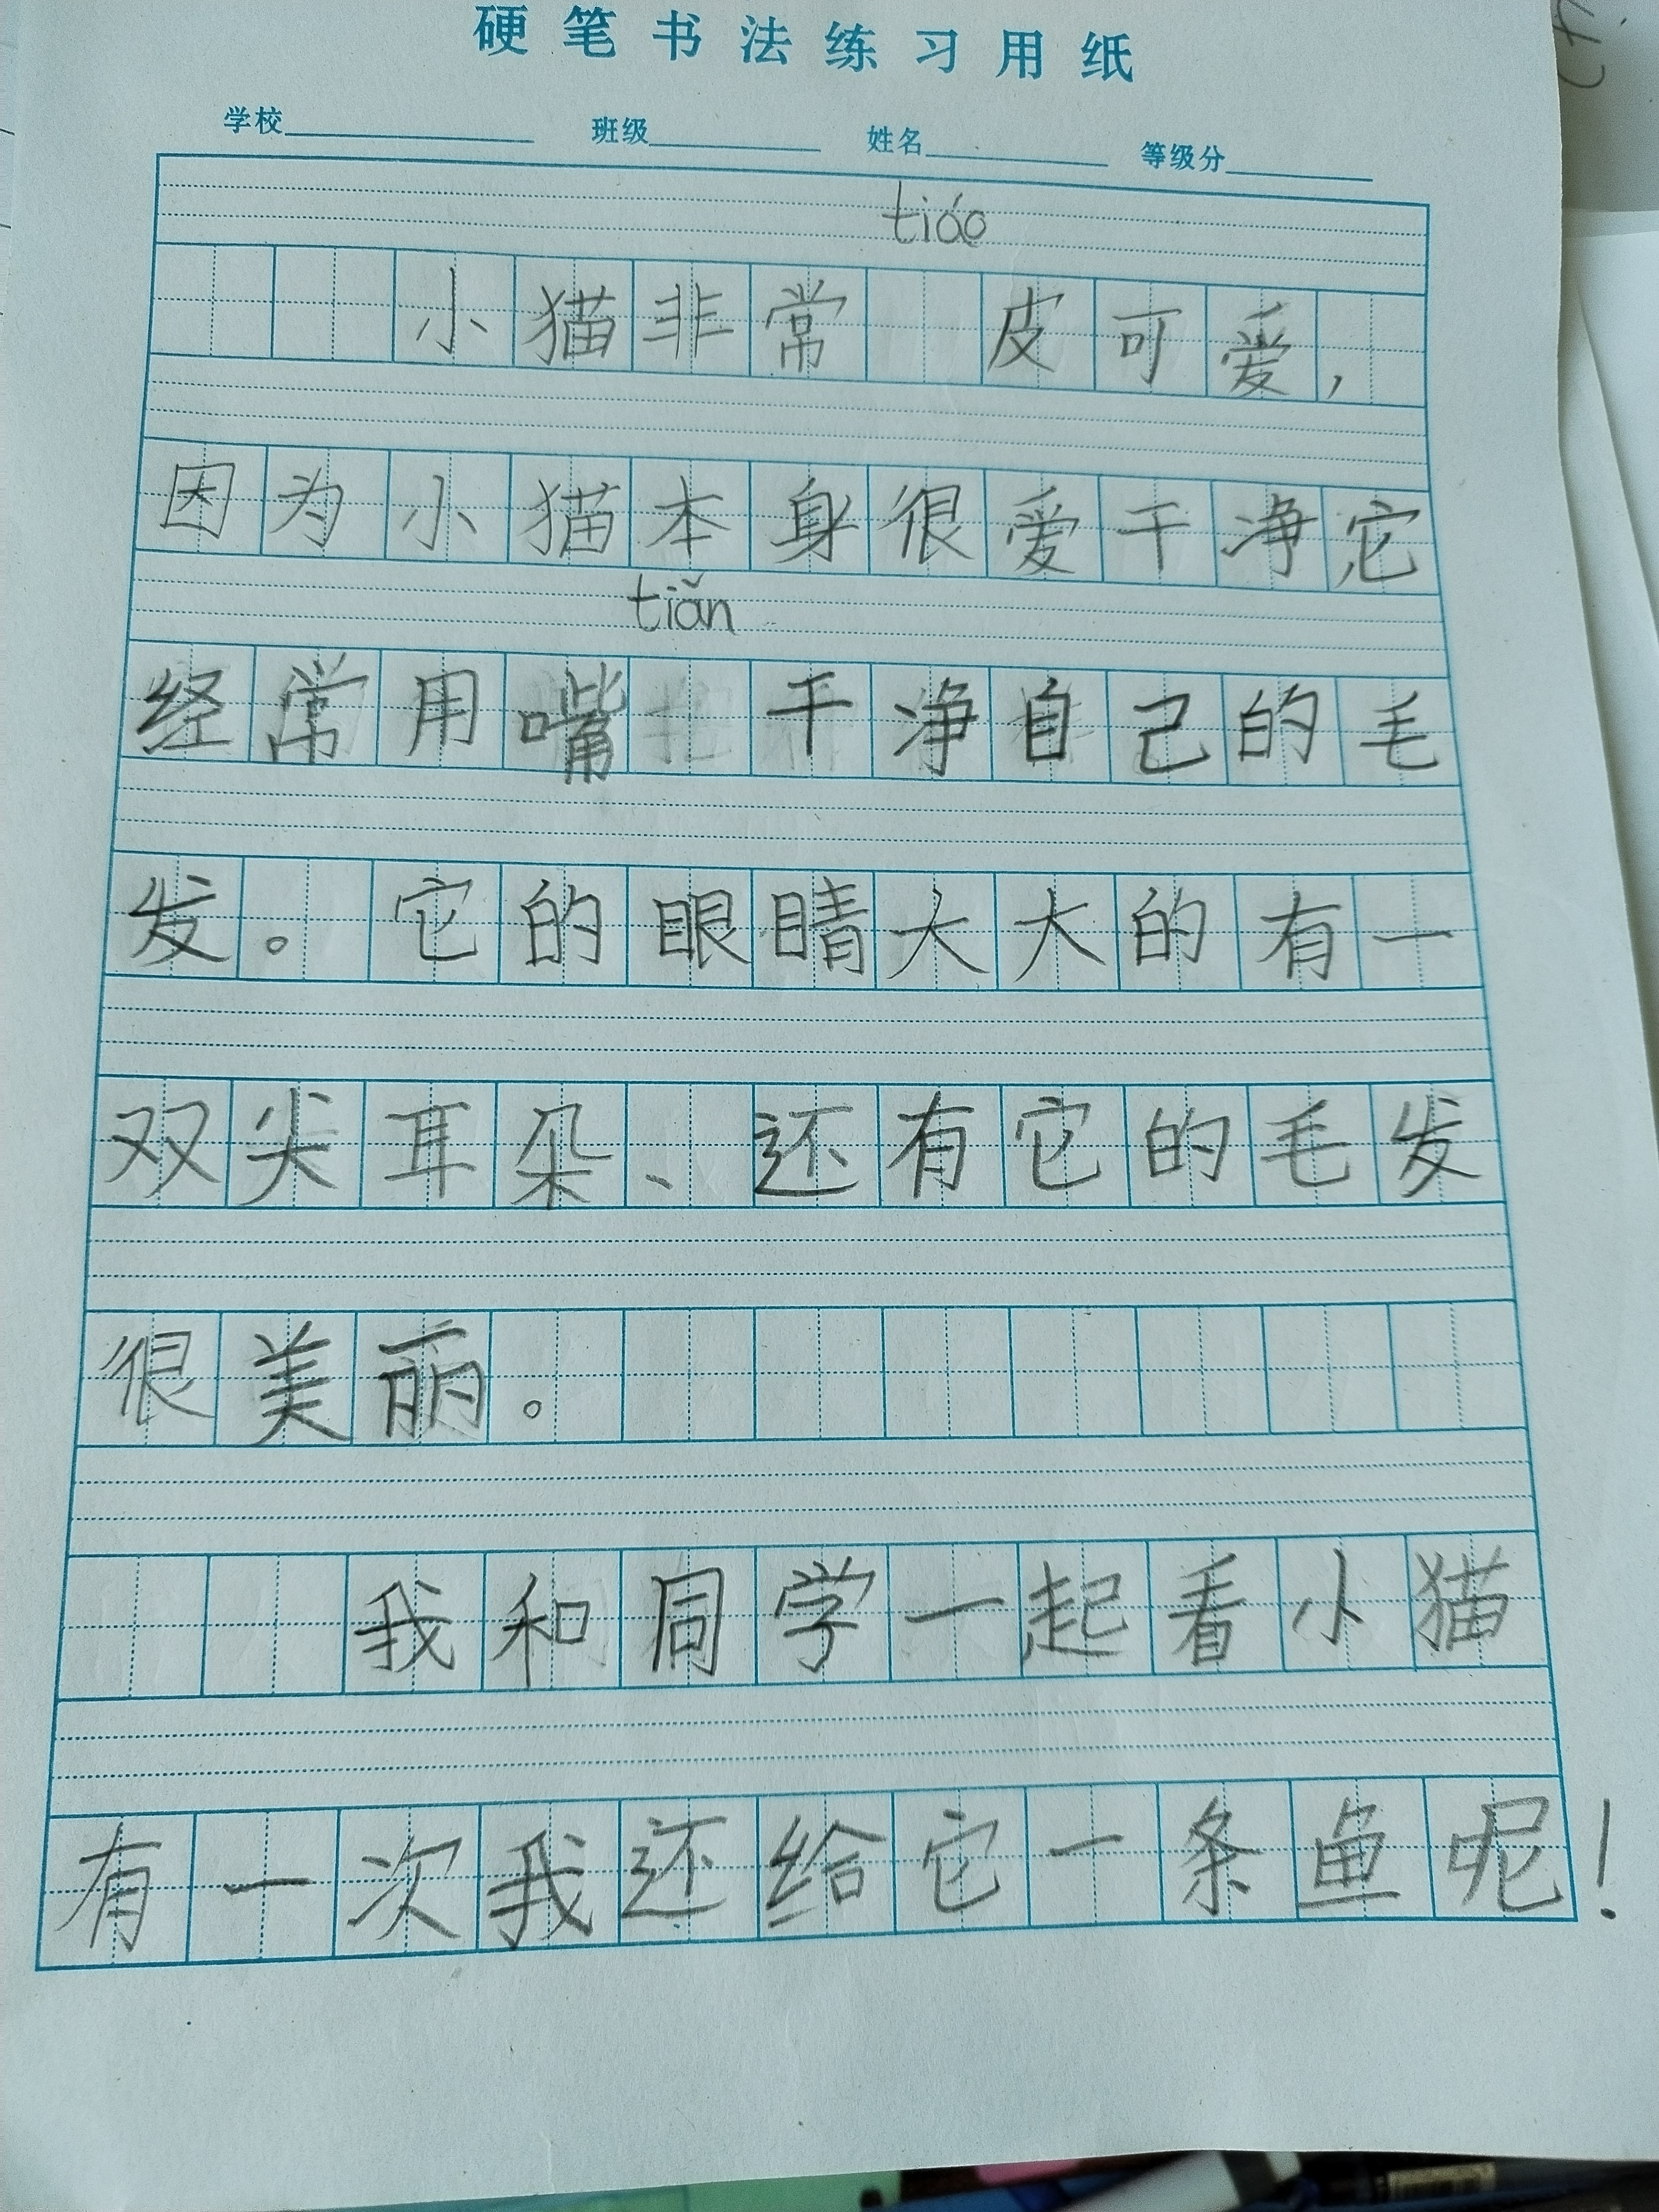 硬笔书法练习用纸
学校 班级 姓名 等级分
tiáo
小猫非常 皮可爱，
因为小猫本身很爱干净它
tiǎn
经常用嘴 干净自己的毛
发。它的眼睛大大的有一
双尖耳朵、还有它的毛发
很美丽。
我和同学一起看小猫
有一次我还给它一条鱼呢！